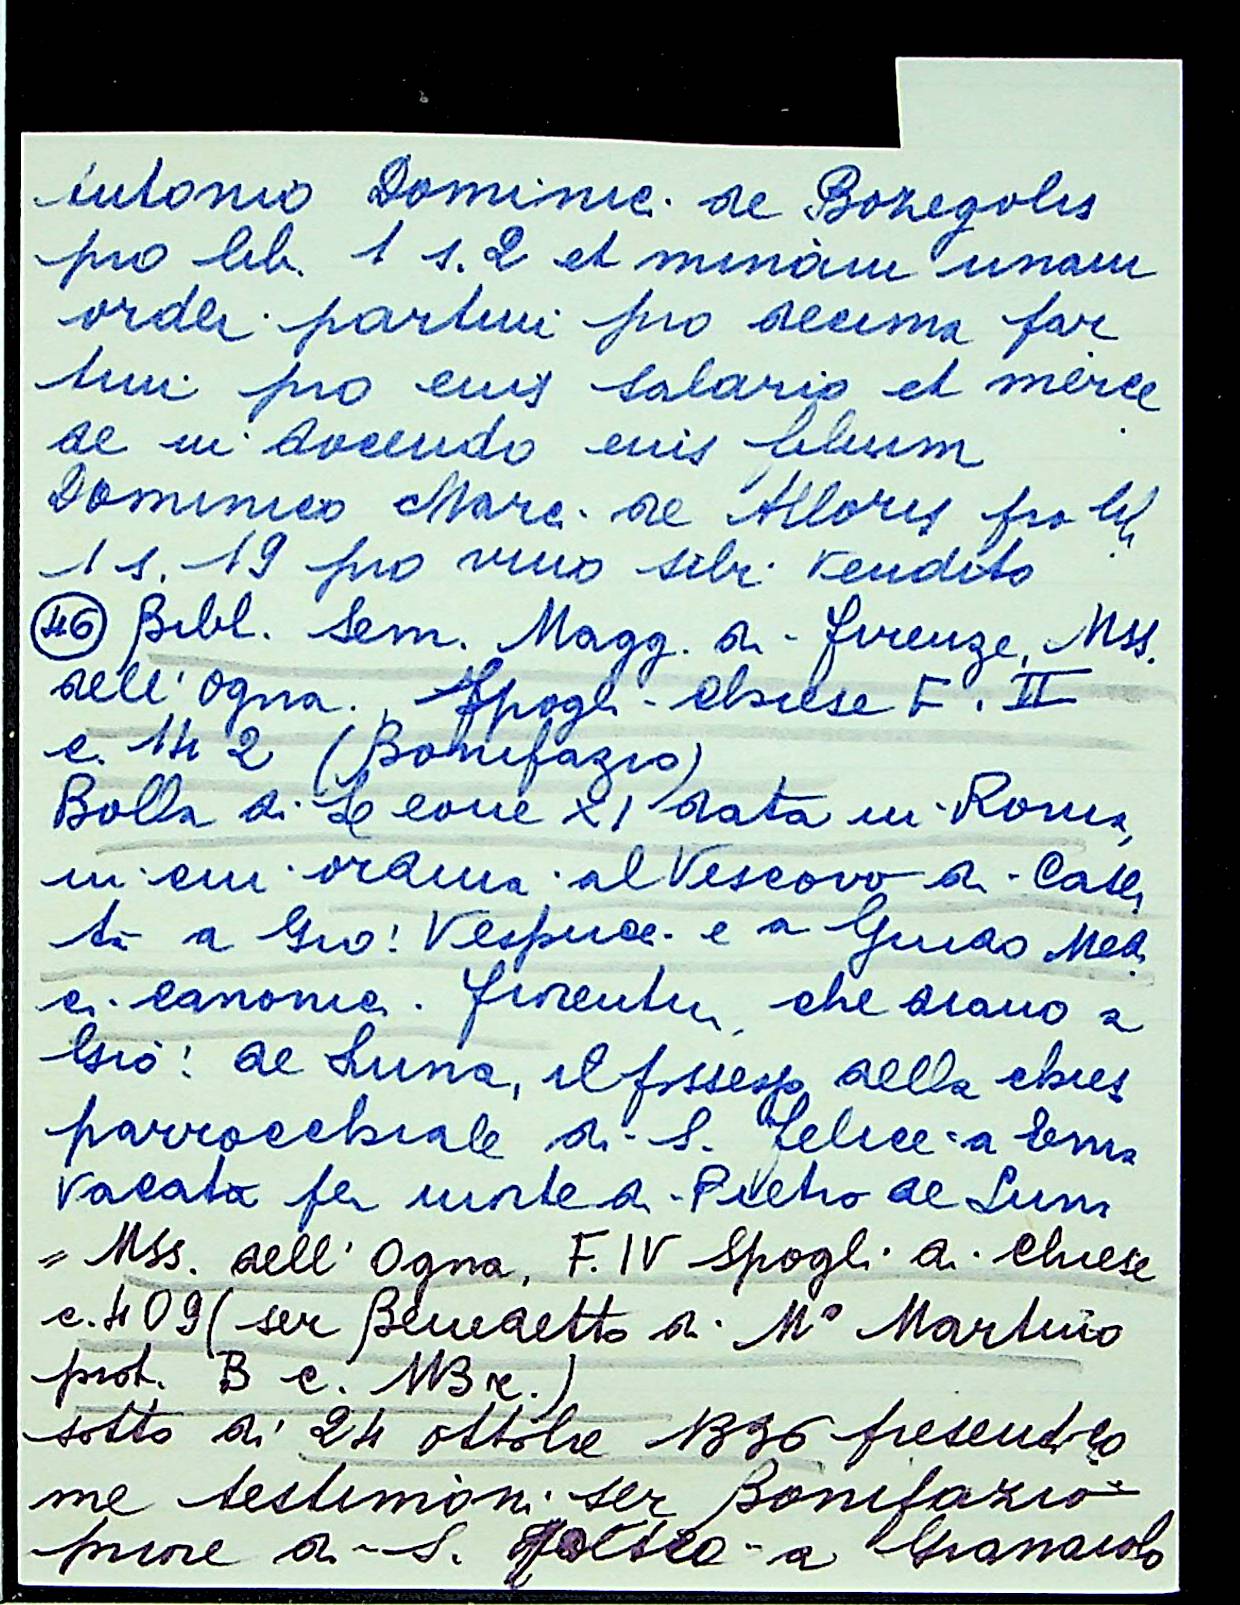 Antonio Dominic. de Bozegolis
pro lib. 1 s. 2 et minam unam
ordei partim pro decima par
tim pro eius salario et merce
de in docendo eius filium
Dominico Marc. de Alloris pro lib.
1 s. 19 pro vino sibi vendito
(46) Bibl. Sem. Magg. di Firenze, Mss.
dell'Ogna. Spogli Chiese F. II
c. 142 (Bonifazio)
Bolla di Leone XI data in Roma,
in cui ordina al Vescovo di
a Gio: Vespucci e a Guido Med
ci canonici Fiorentin, che diano a
Gio: de Luna, il possesso della chies
parrocchiale di S. Felice a Ema
vacata per morte di Pietro de Luna
= Mss. dell'Ogna, F. IV Spogli di Chiese
c. 409 (ser Benedetto di Mº Martino
prot. B c.
sotto dì 24 ottobre 1336 presenti co
me testimoni ser Bonifazio
priore di S. a